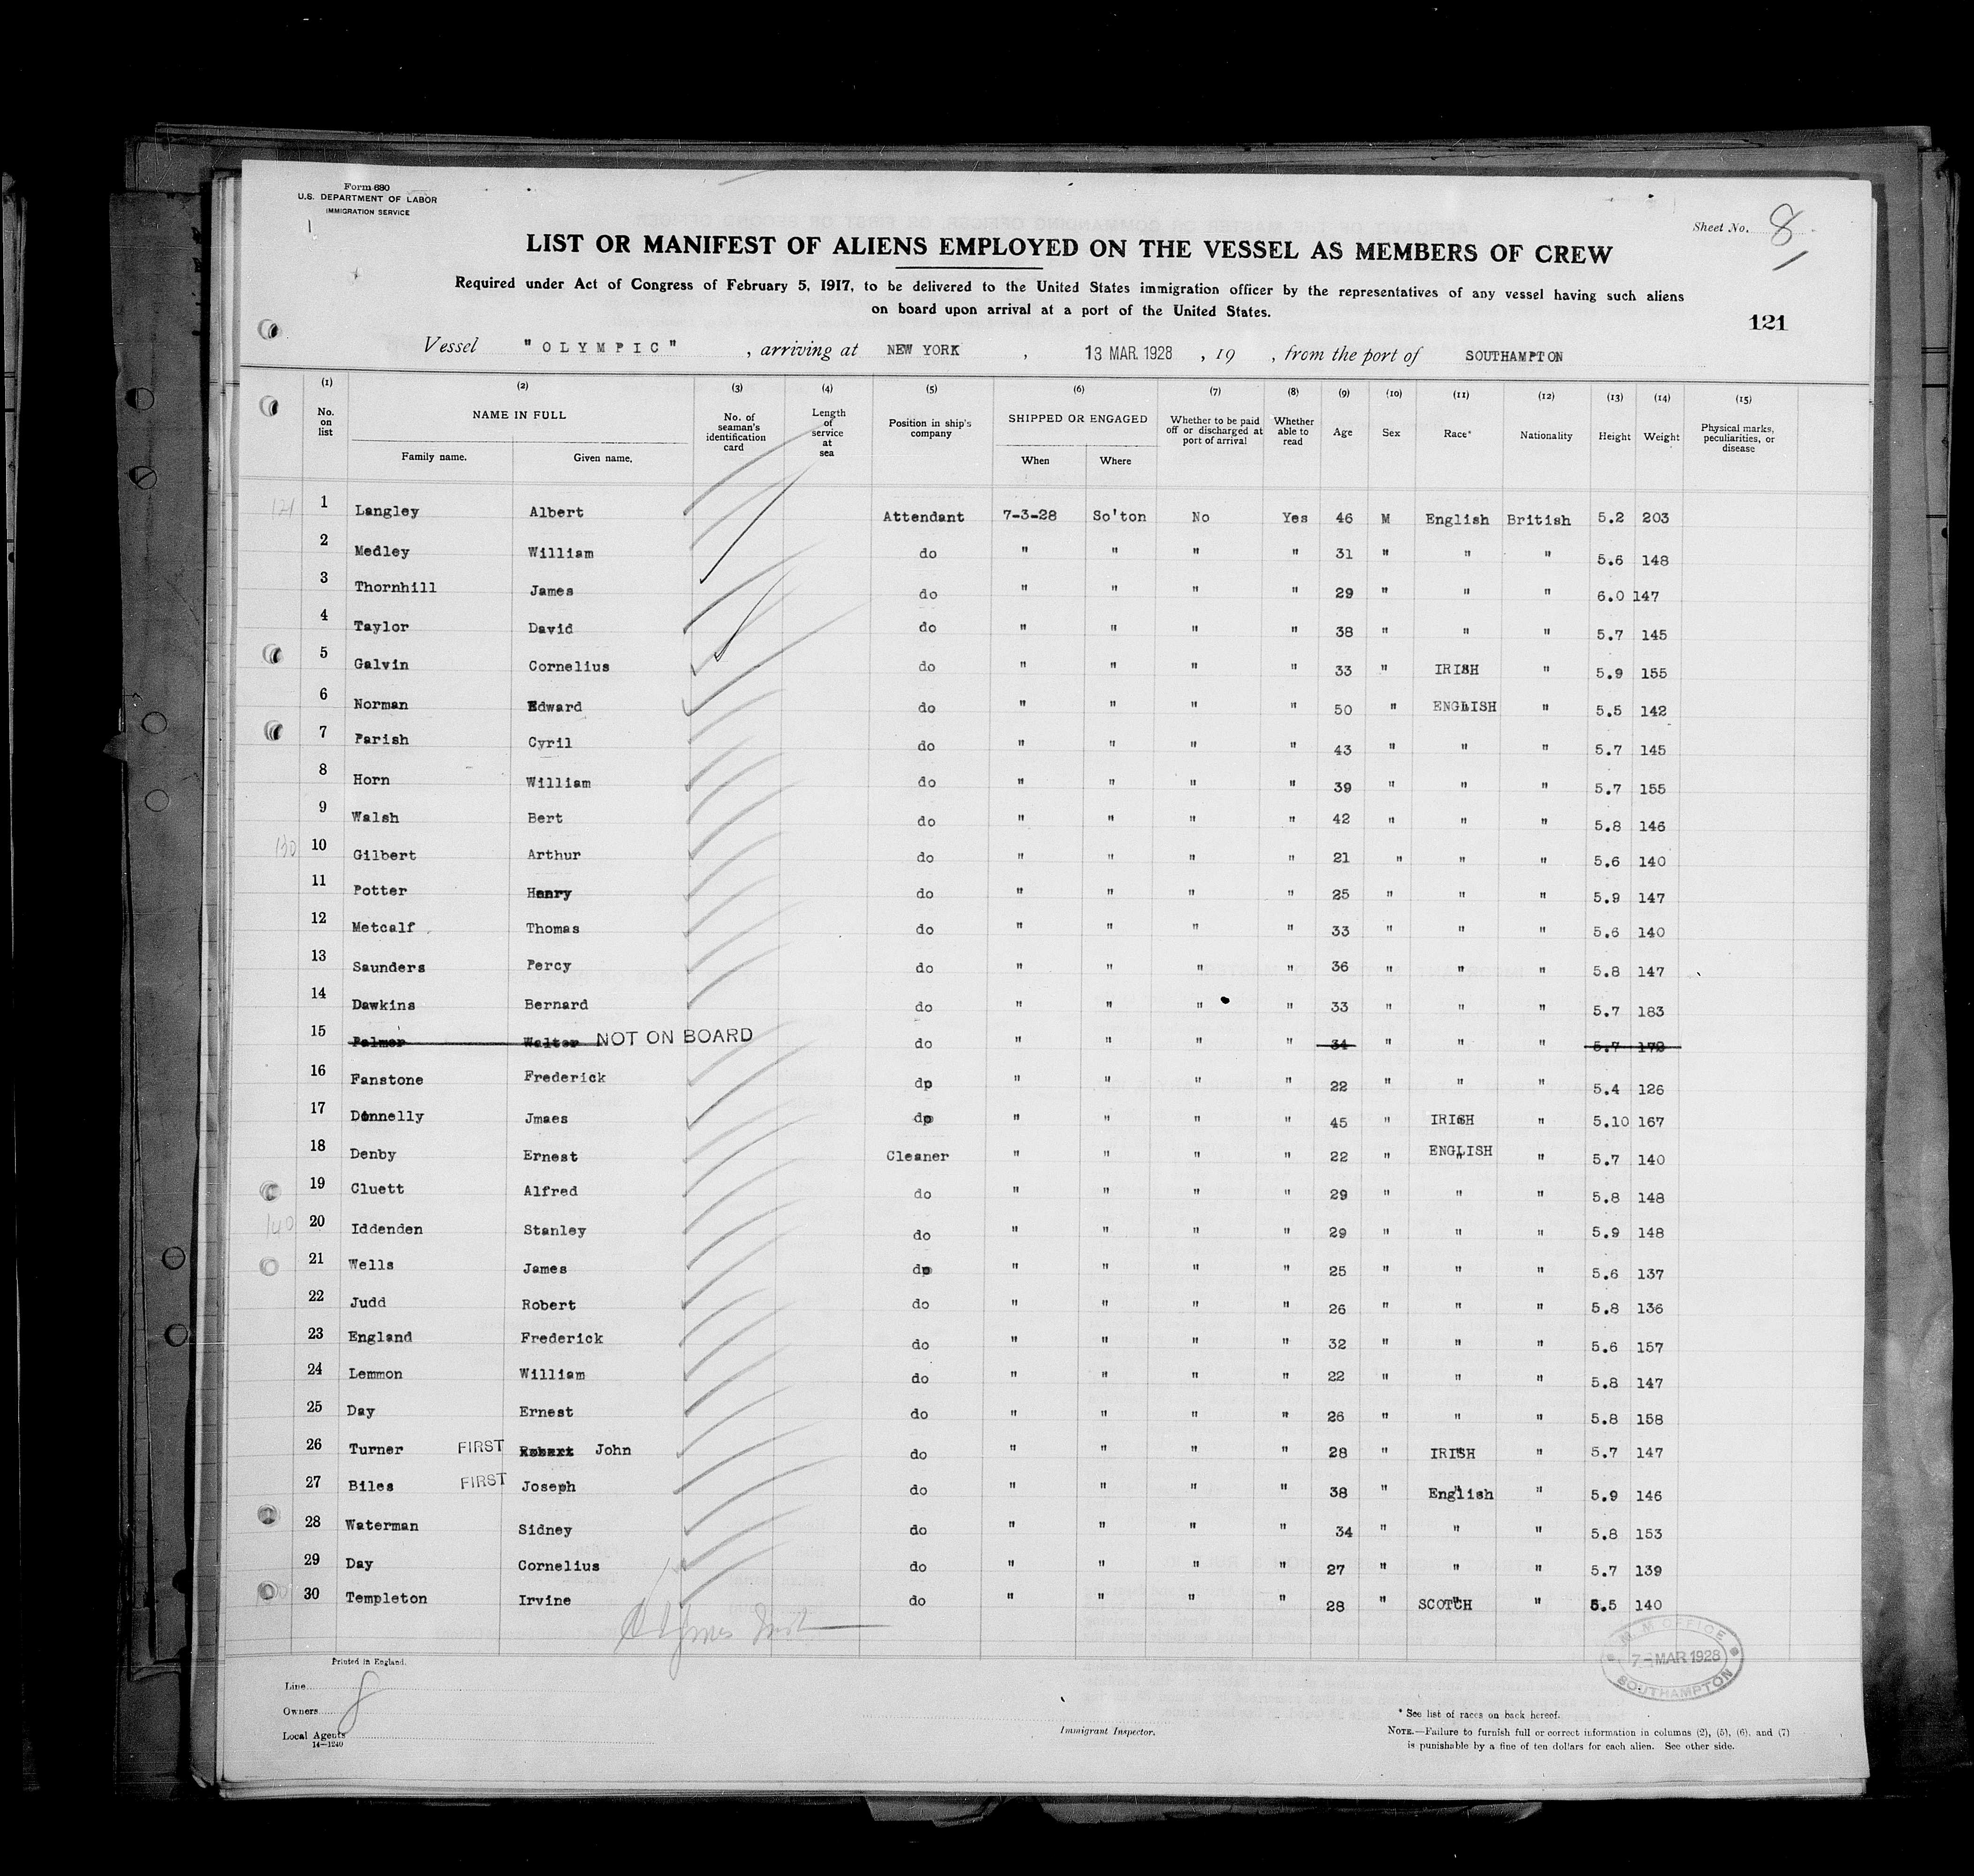 Form 680
U.S. DEPARTMENT OF LABOR
IMMIGRATION SERVICE
Sheet No. 8
LIST OR MANIFEST OF ALIENS EMPLOYED ON THE VESSEL AS MEMBERS OF CREW
Required under Act of Congress of February 5, 1917, to be delivered to the United States immigration officer by the representatives of any vessel having such aliens
on board upon arrival at a port of the United States.
121
Vessel "OLYMPIC" , arriving at NEW YORK , 13 MAR. 1928 , 19 , from the port of SOUTHAMPTON
(1) (2) (3) (4) (5) (6) (7) (8) (9) (10) (11) (12) (13) (14) (15)
No. on list NAME IN FULL Family name. Given name. No. of seaman's identification card Length of service at sea Position in ship's company SHIPPED OR ENGAGED When Where Whether to be paid off or discharged at port of arrival Whether able to read Age Sex Race* Nationality Height Weight Physical marks, peculiarities, or disease
121 1 Langley Albert Attendant 7-3-28 So'ton No Yes 46 M English British 5.2 203
2 Medley William do " " " " 31 " " " 5.6 148
3 Thornhill James do " " " " 29 " " " 6.0 147
4 Taylor David do " " " " 38 " " " 5.7 145
5 Galvin Cornelius do " " " " 33 " IRISH " 5.9 155
6 Norman Edward do " " " " 50 " ENGLISH " 5.5 142
7 Parish Cyril do " " " " 43 " " " 5.7 145
8 Horn William do " " " " 39 " " " 5.7 155
9 Walsh Bert do " " " " 42 " " " 5.8 146
130 10 Gilbert Arthur do " " " " 21 " " " 5.6 140
11 Potter Henry do " " " " 25 " " " 5.9 147
12 Metcalf Thomas do " " " " 33 " " " 5.6 140
13 Saunders Percy do " " " " 36 " " " 5.8 147
14 Dawkins Bernard do " " " " 33 " " " 5.7 183
15 Palmer Walter NOT ON BOARD do " " " " 34 " " " 5.7 172
16 Fanstone Frederick do " " " " 22 " " " 5.4 126
17 Donnelly Jmaes do " " " " 45 " IRISH " 5.10 167
18 Denby Ernest Cleaner " " " " 22 " ENGLISH " 5.7 140
19 Cluett Alfred do " " " " 29 " " " 5.8 148
140 20 Iddenden Stanley do " " " " 29 " " " 5.9 148
21 Wells James do " " " " 25 " " " 5.6 137
22 Judd Robert do " " " " 26 " " " 5.8 136
23 England Frederick do " " " " 32 " " " 5.6 157
24 Lemmon William do " " " " 22 " " " 5.8 147
25 Day Ernest do " " " " 26 " " " 5.8 158
26 Turner FIRST Robert John do " " " " 28 " IRISH " 5.7 147
27 Biles FIRST Joseph do " " " " 38 " English " 5.9 146
28 Waterman Sidney do " " " " 34 " " " 5.8 153
29 Day Cornelius do " " " " 27 " " " 5.7 139
30 Templeton Irvine do " " " " 28 " SCOTCH " 5.5 140
M.M OFFICE
7-MAR 1928
SOUTHAMPTON
Printed in England.
Line
Owners 8
Local Agents
14-1240
Immigrant Inspector.
* See list of races on back hereof.
NOTE.—Failure to furnish full or correct information in columns (2), (5), (6), and (7)
is punishable by a fine of ten dollars for each alien. See other side.